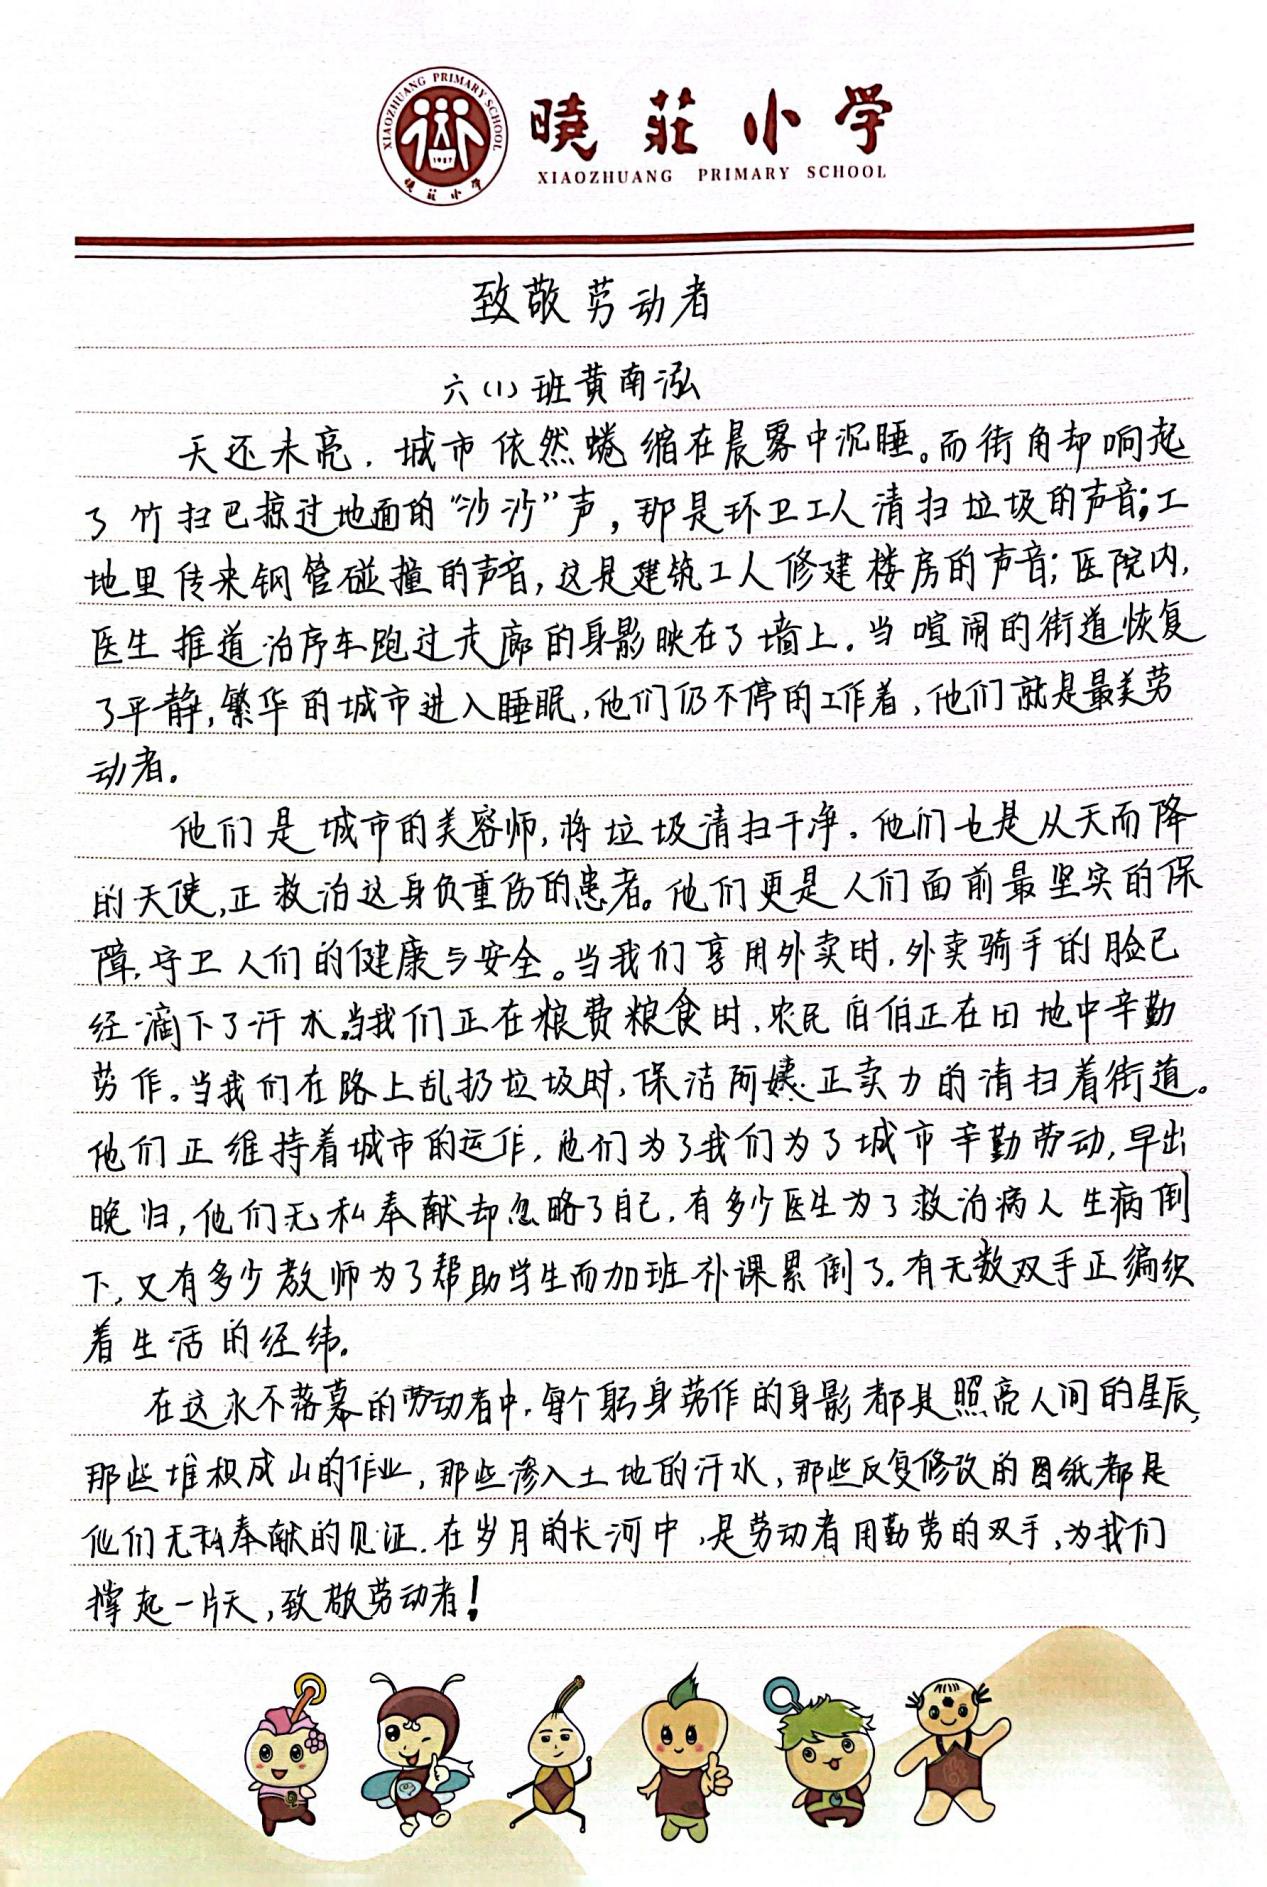 XIAOZHUANG PRIMARY SCHOOL
1927
晓莊小学
晓莊小学
XIAOZHUANG PRIMARY SCHOOL
致敬劳动者
六(1)班黄南泓
天还未亮，城市依然蜷缩在晨雾中沉睡。而街角却响起
了竹扫巴掠过地面的“沙沙”声，那是环卫工人清扫垃圾的声音；工
地里传来钢管碰撞的声音，这是建筑工人修建楼房的声音；医院内，
医生推道治疗车跑过走廊的身影映在了墙上。当喧闹的街道恢复
了平静，繁华的城市进入睡眠，他们仍不停的工作着，他们就是最美劳
动者。
他们是城市的美容师，将垃圾清扫干净。他们也是从天而降
的天使，正救治这身负重伤的患者。他们更是人们面前最坚实的保
障，守卫人们的健康与安全。当我们享用外卖时，外卖骑手的脸已
经滴下了汗水。当我们正在粮费粮食时，农民伯伯正在田地中辛勤
劳作。当我们在路上乱扔垃圾时，保洁阿姨正卖力的清扫着街道。
他们正维持着城市的运作，他们为了我们为了城市辛勤劳动，早出
晚归，他们无私奉献却忽略了自己，有多少医生为了救治病人生病倒
下，又有多少教师为了帮助学生而加班补课累倒了。有无数双手正编织
着生活的经纬。
在这永不落幕的劳动者中，每个躬身劳作的身影都是照亮人间的星辰，
那些堆积成山的作业，那些渗入土地的汗水，那些反复修改的图纸都是
他们无私奉献的见证。在岁月的长河中，是劳动者用勤劳的双手，为我们
撑起一片天，致敬劳动者！